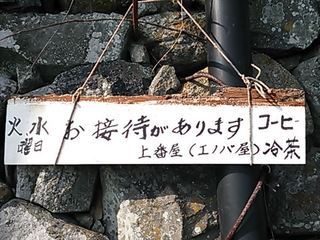 火.水
曜日
お接待があります
上番屋(エノバ屋)
コーヒー
冷茶